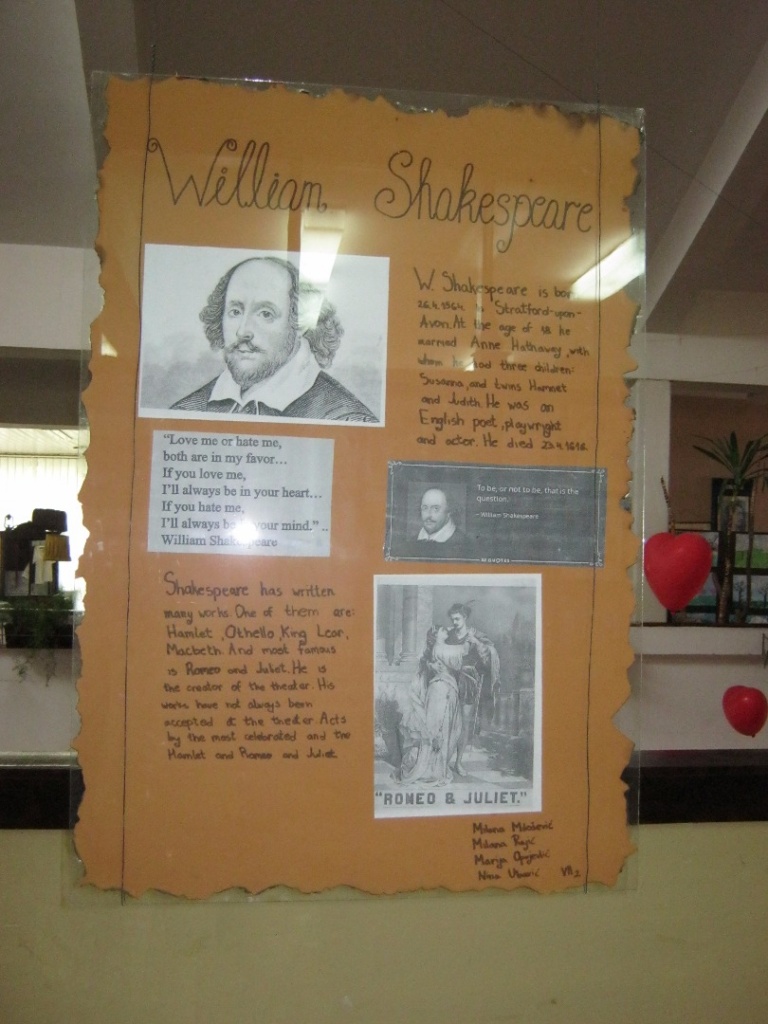 William Shakespeare
W. Shakespeare is bor
26.4.1564. in Stratford-upon-
Avon. At the age of 18 he
married Anne Hathaway, with
whom he had three children:
Susanna, and twins Hamnet
and Judith. He was an
English poet, playwright
and actor. He died 23.4.1616.
"Love me or hate me,
both are in my favor...
If you love me,
I'll always be in your heart...
If you hate me,
I'll always be your mind." ..
William Shakespeare
To be, or not to be, that is the
question.
- William Shakespeare
Shakespeare has written
many works. One of them are:
Hamlet, Othello, King Lear,
Macbeth. And most famous
is Romeo and Juliet. He is
the creator of the theater. His
works have not always been
accepted at the theater. Acts
by the most celebrated and the
Hamlet and Romeo and Juliet.
"ROMEO & JULIET."
Milana
Milana
Marija
Nina
VII2